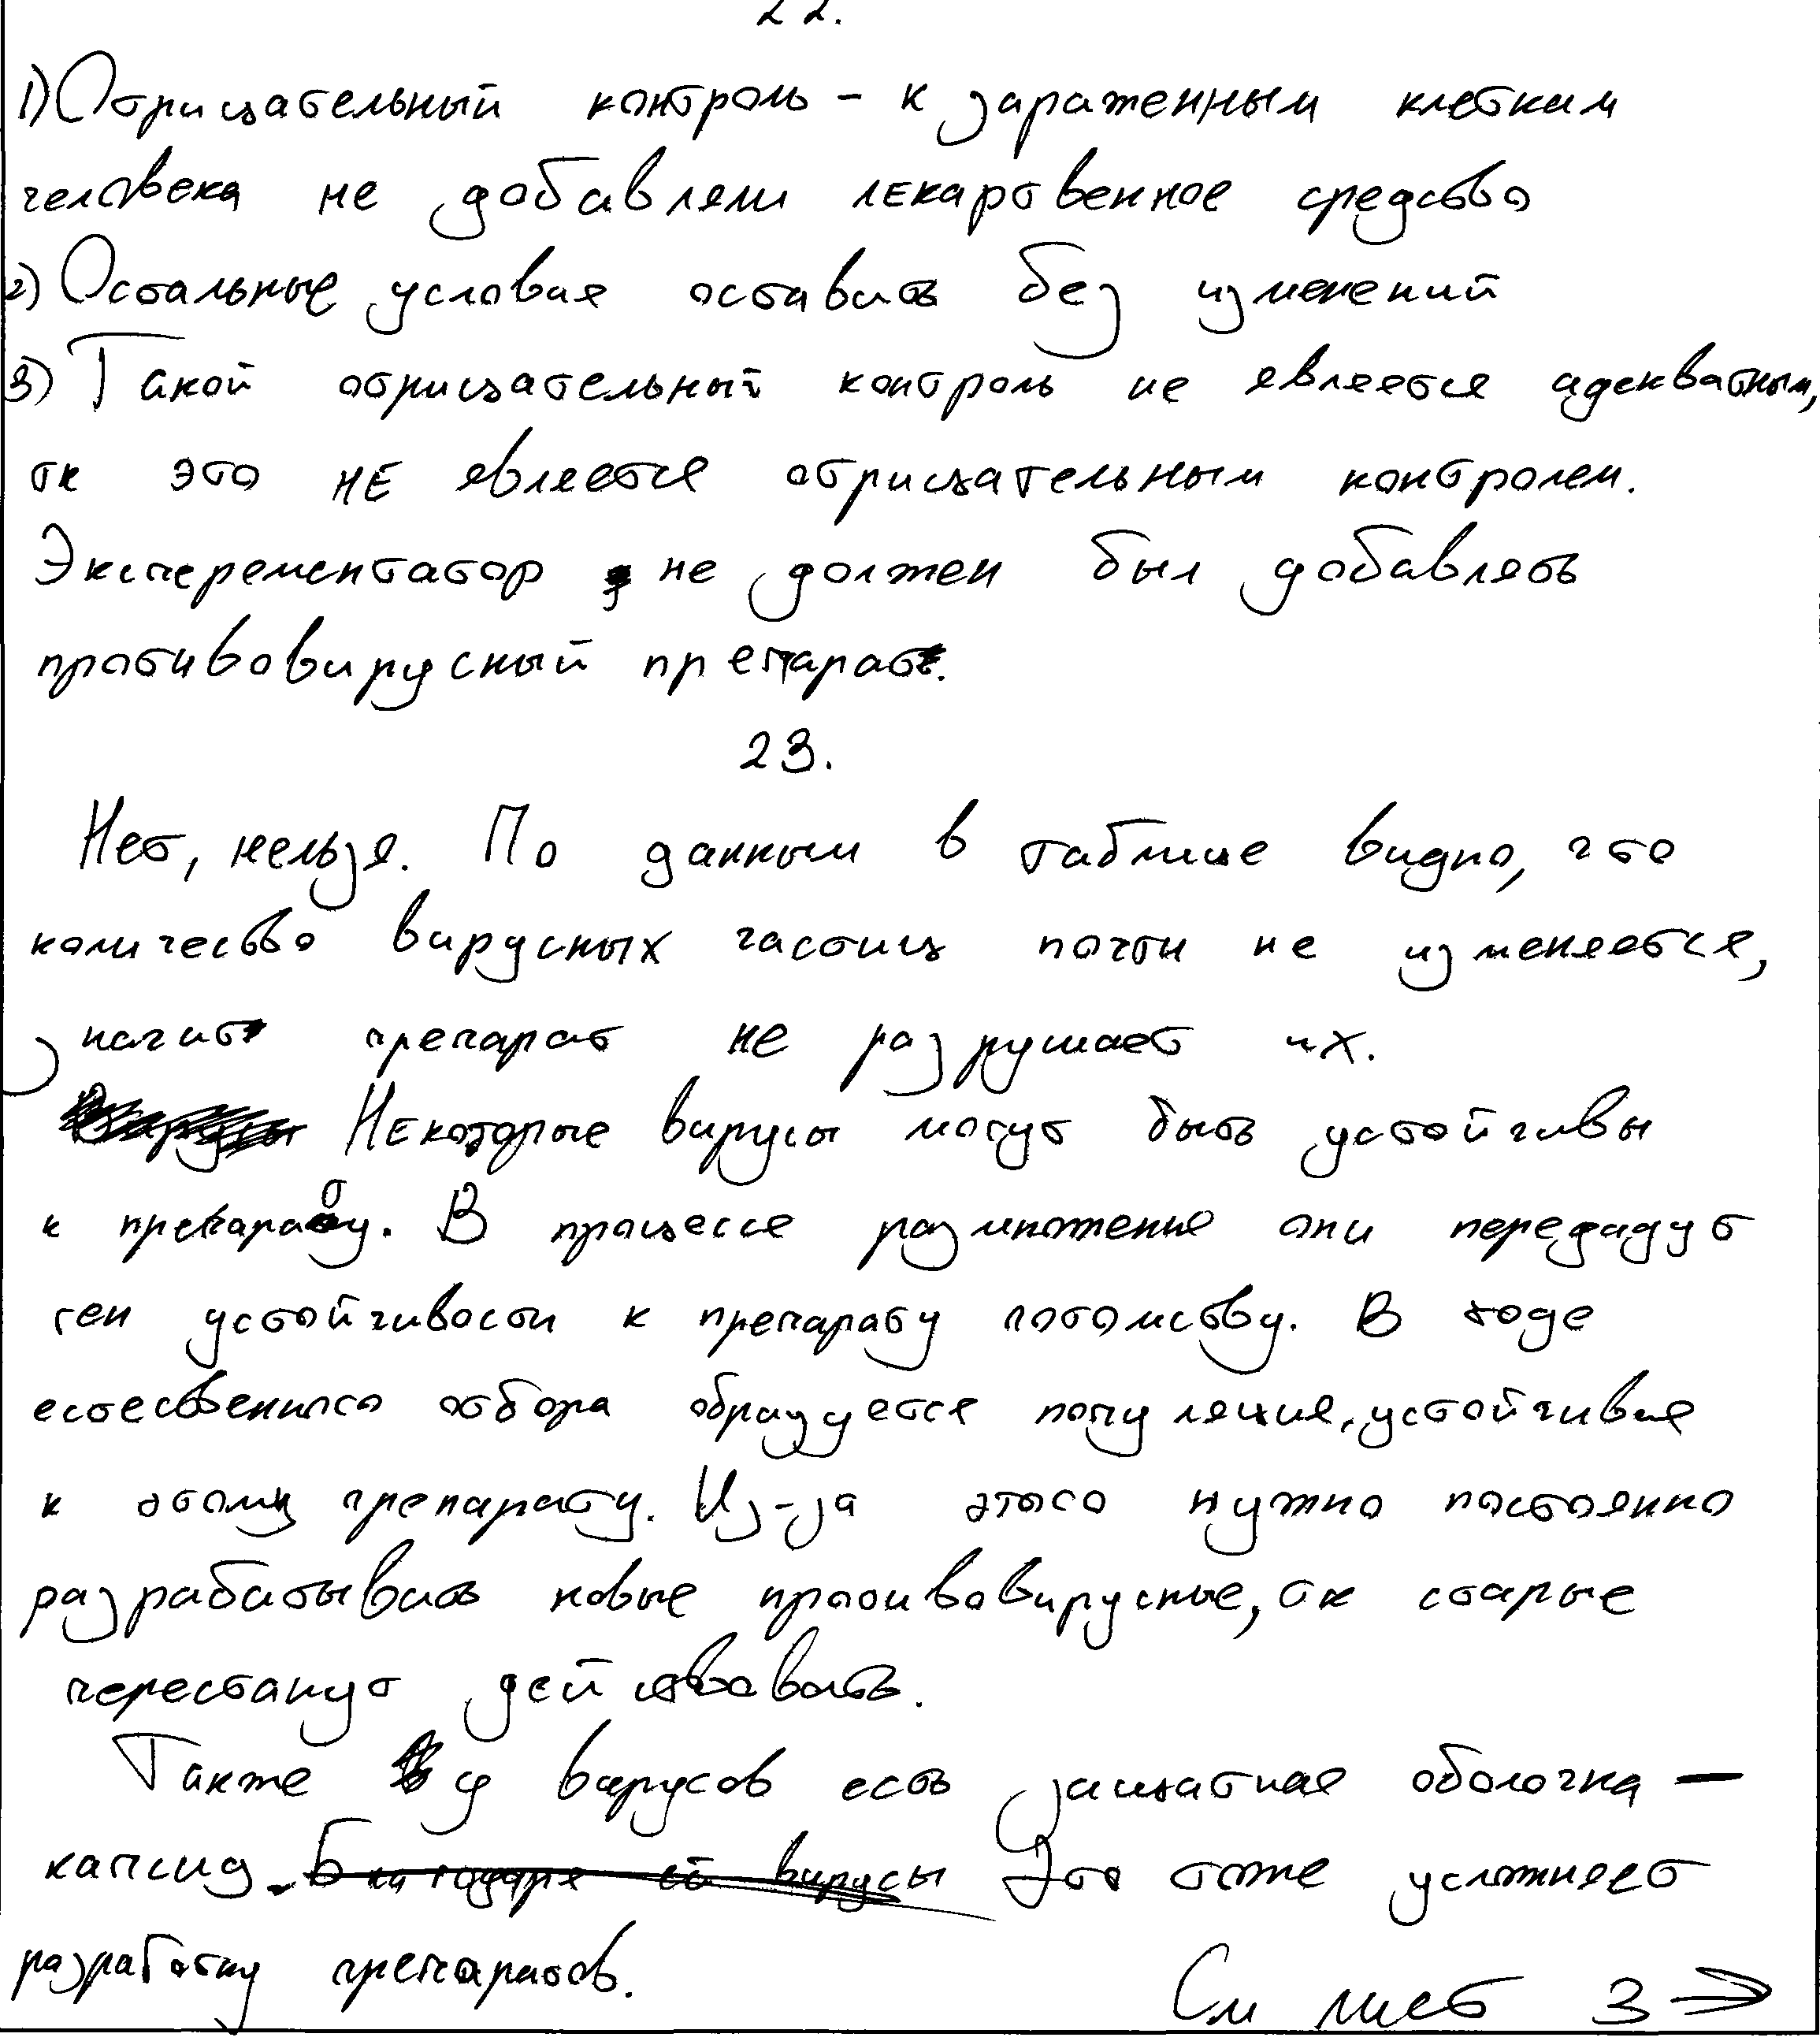 22.
1) Отрицательный контроль - к зараженным клеткам
человека не добавляли лекарственное средство
2) Остальные условия оставить без изменений
3) Такой отрицательный контроль не является адекватным,
тк это НЕ является отрицательным контролем.
Эксперементатор не должен был добавлять
противовирусный препарат.
23.
Нет, нельзя. По данным в таблице видно, что
количество вирусных частиц почти не изменяется,
значит препарат не разрушает их.
Некоторые вирусы могут быть устойчивы
к препарату. В процессе размножения они передадут
ген устойчивости к препарату потомству. В ходе
естественного отбора образуется популяция, устойчивая
к этому препарату. Из-за этого нужно постоянно
разрабатывать новые противовирусные, тк старые
перестанут действовать.
Также у вирусов есть защитная оболочка —
капсид. Благодаря ей вирусы Это тоже усложняет
разработку препаратов.
См лист 3 →